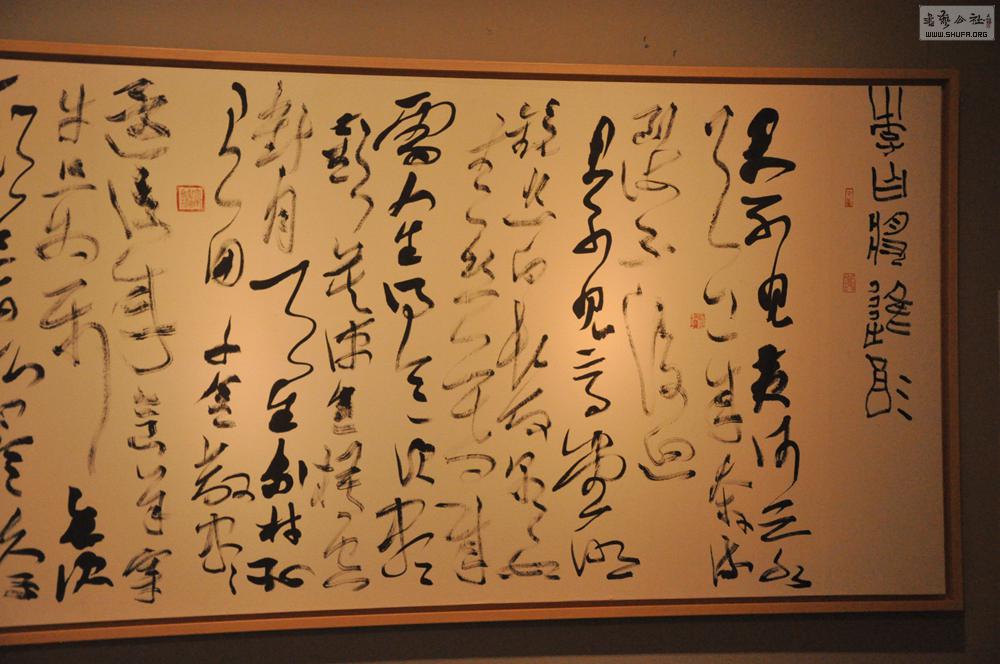 李白將進酒
君不見黄河之水
天上來奔流
到海不復迴
君不見高堂明
鏡悲白髮朝如
青絲暮成
雪人生得意須盡
歡莫使金樽空
對月天生我材
必有用千金散盡
還復來烹羊宰
牛且為樂會須
WWW.SHUFA.ORG